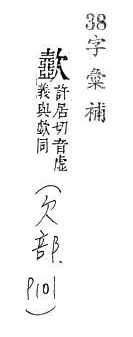 38字彙補
許居切音虛
義與歔同
(欠部. P101)